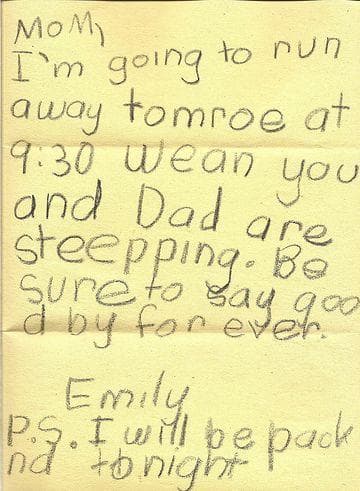 Mom,
I'm going to run
away tomroe at
9:30 wean you
and Dad are
steepping. Be
sure to say goo
d by for ever.
Emily
P.S. I will be pack
nd tonight